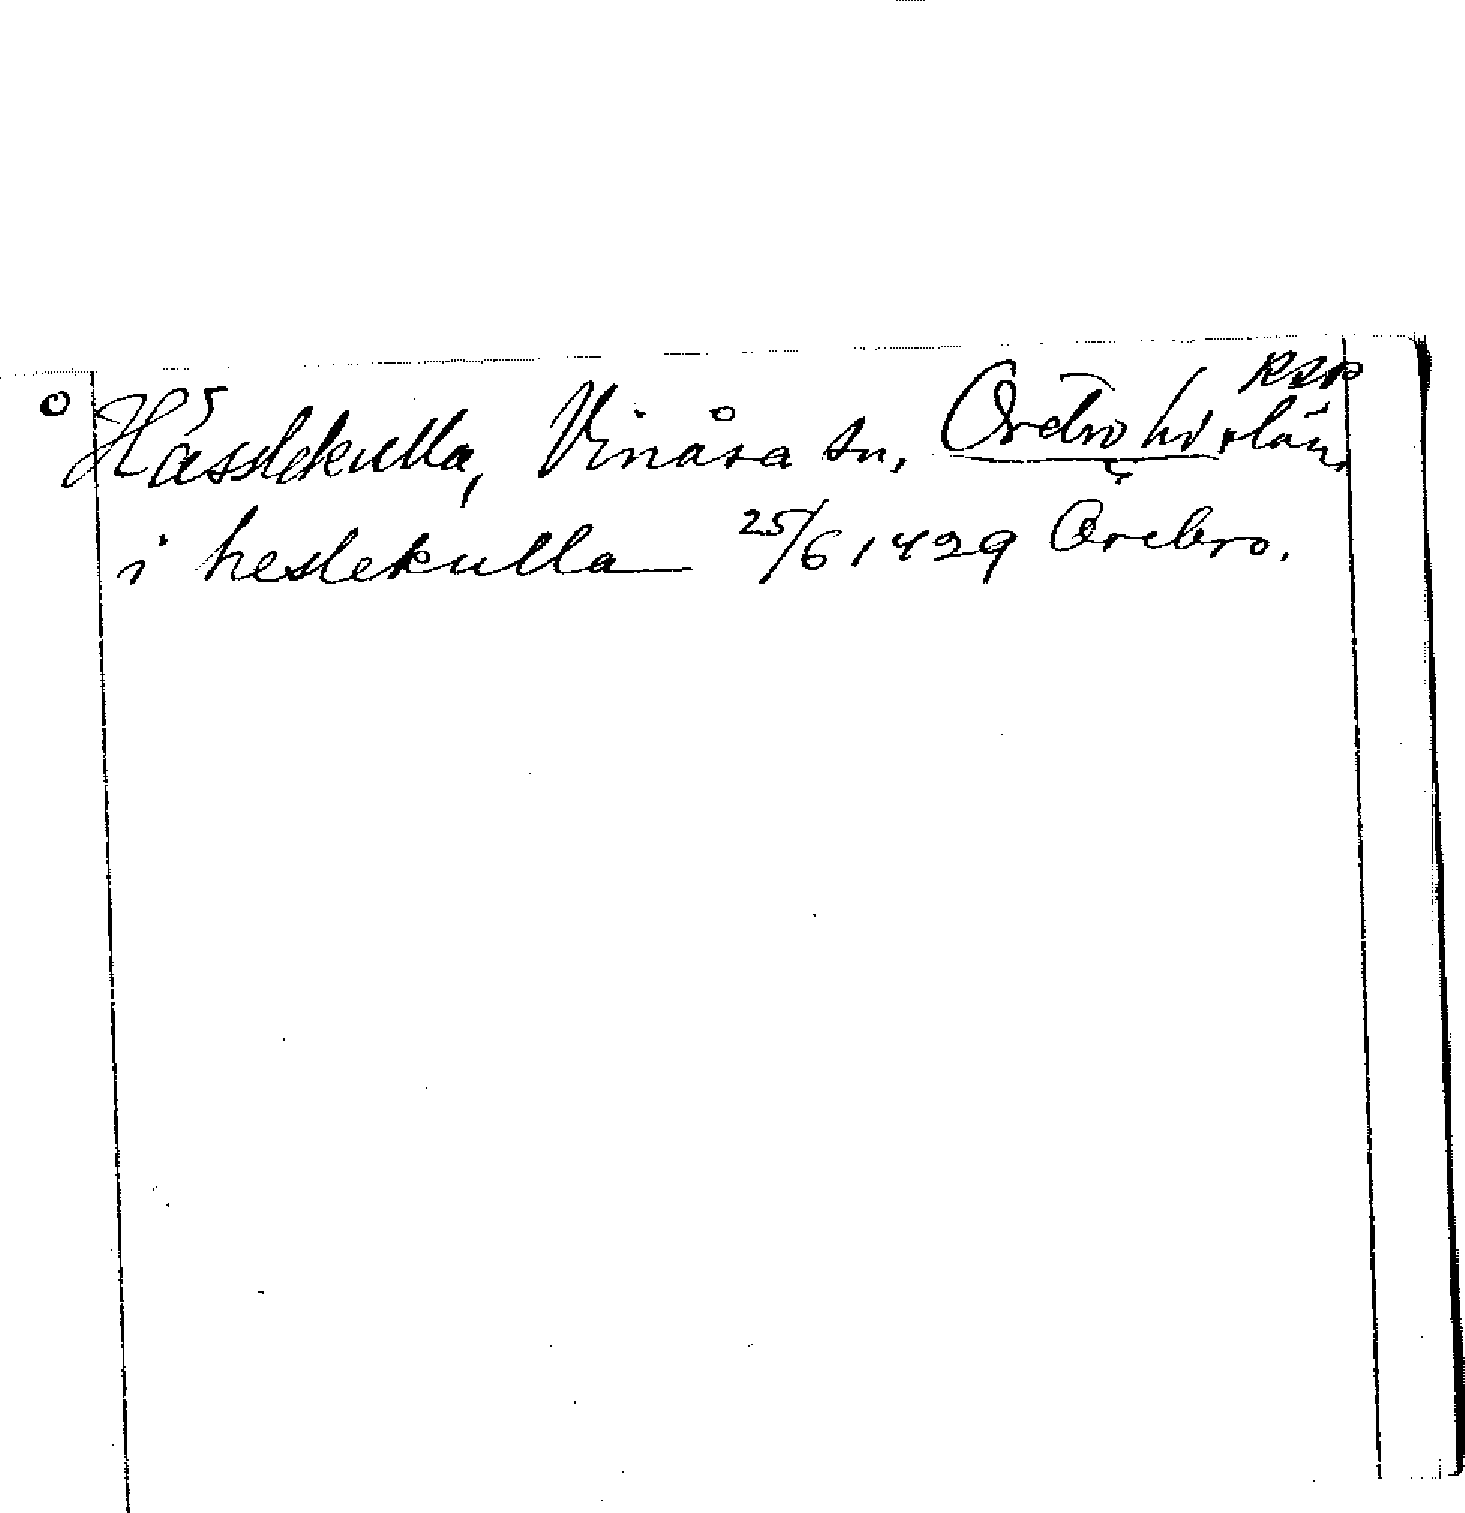 RAP
Hässlekulla, Vinåsa sn, Örebro hd, o län.
i heslekulla 25/6 1429 Örebro.